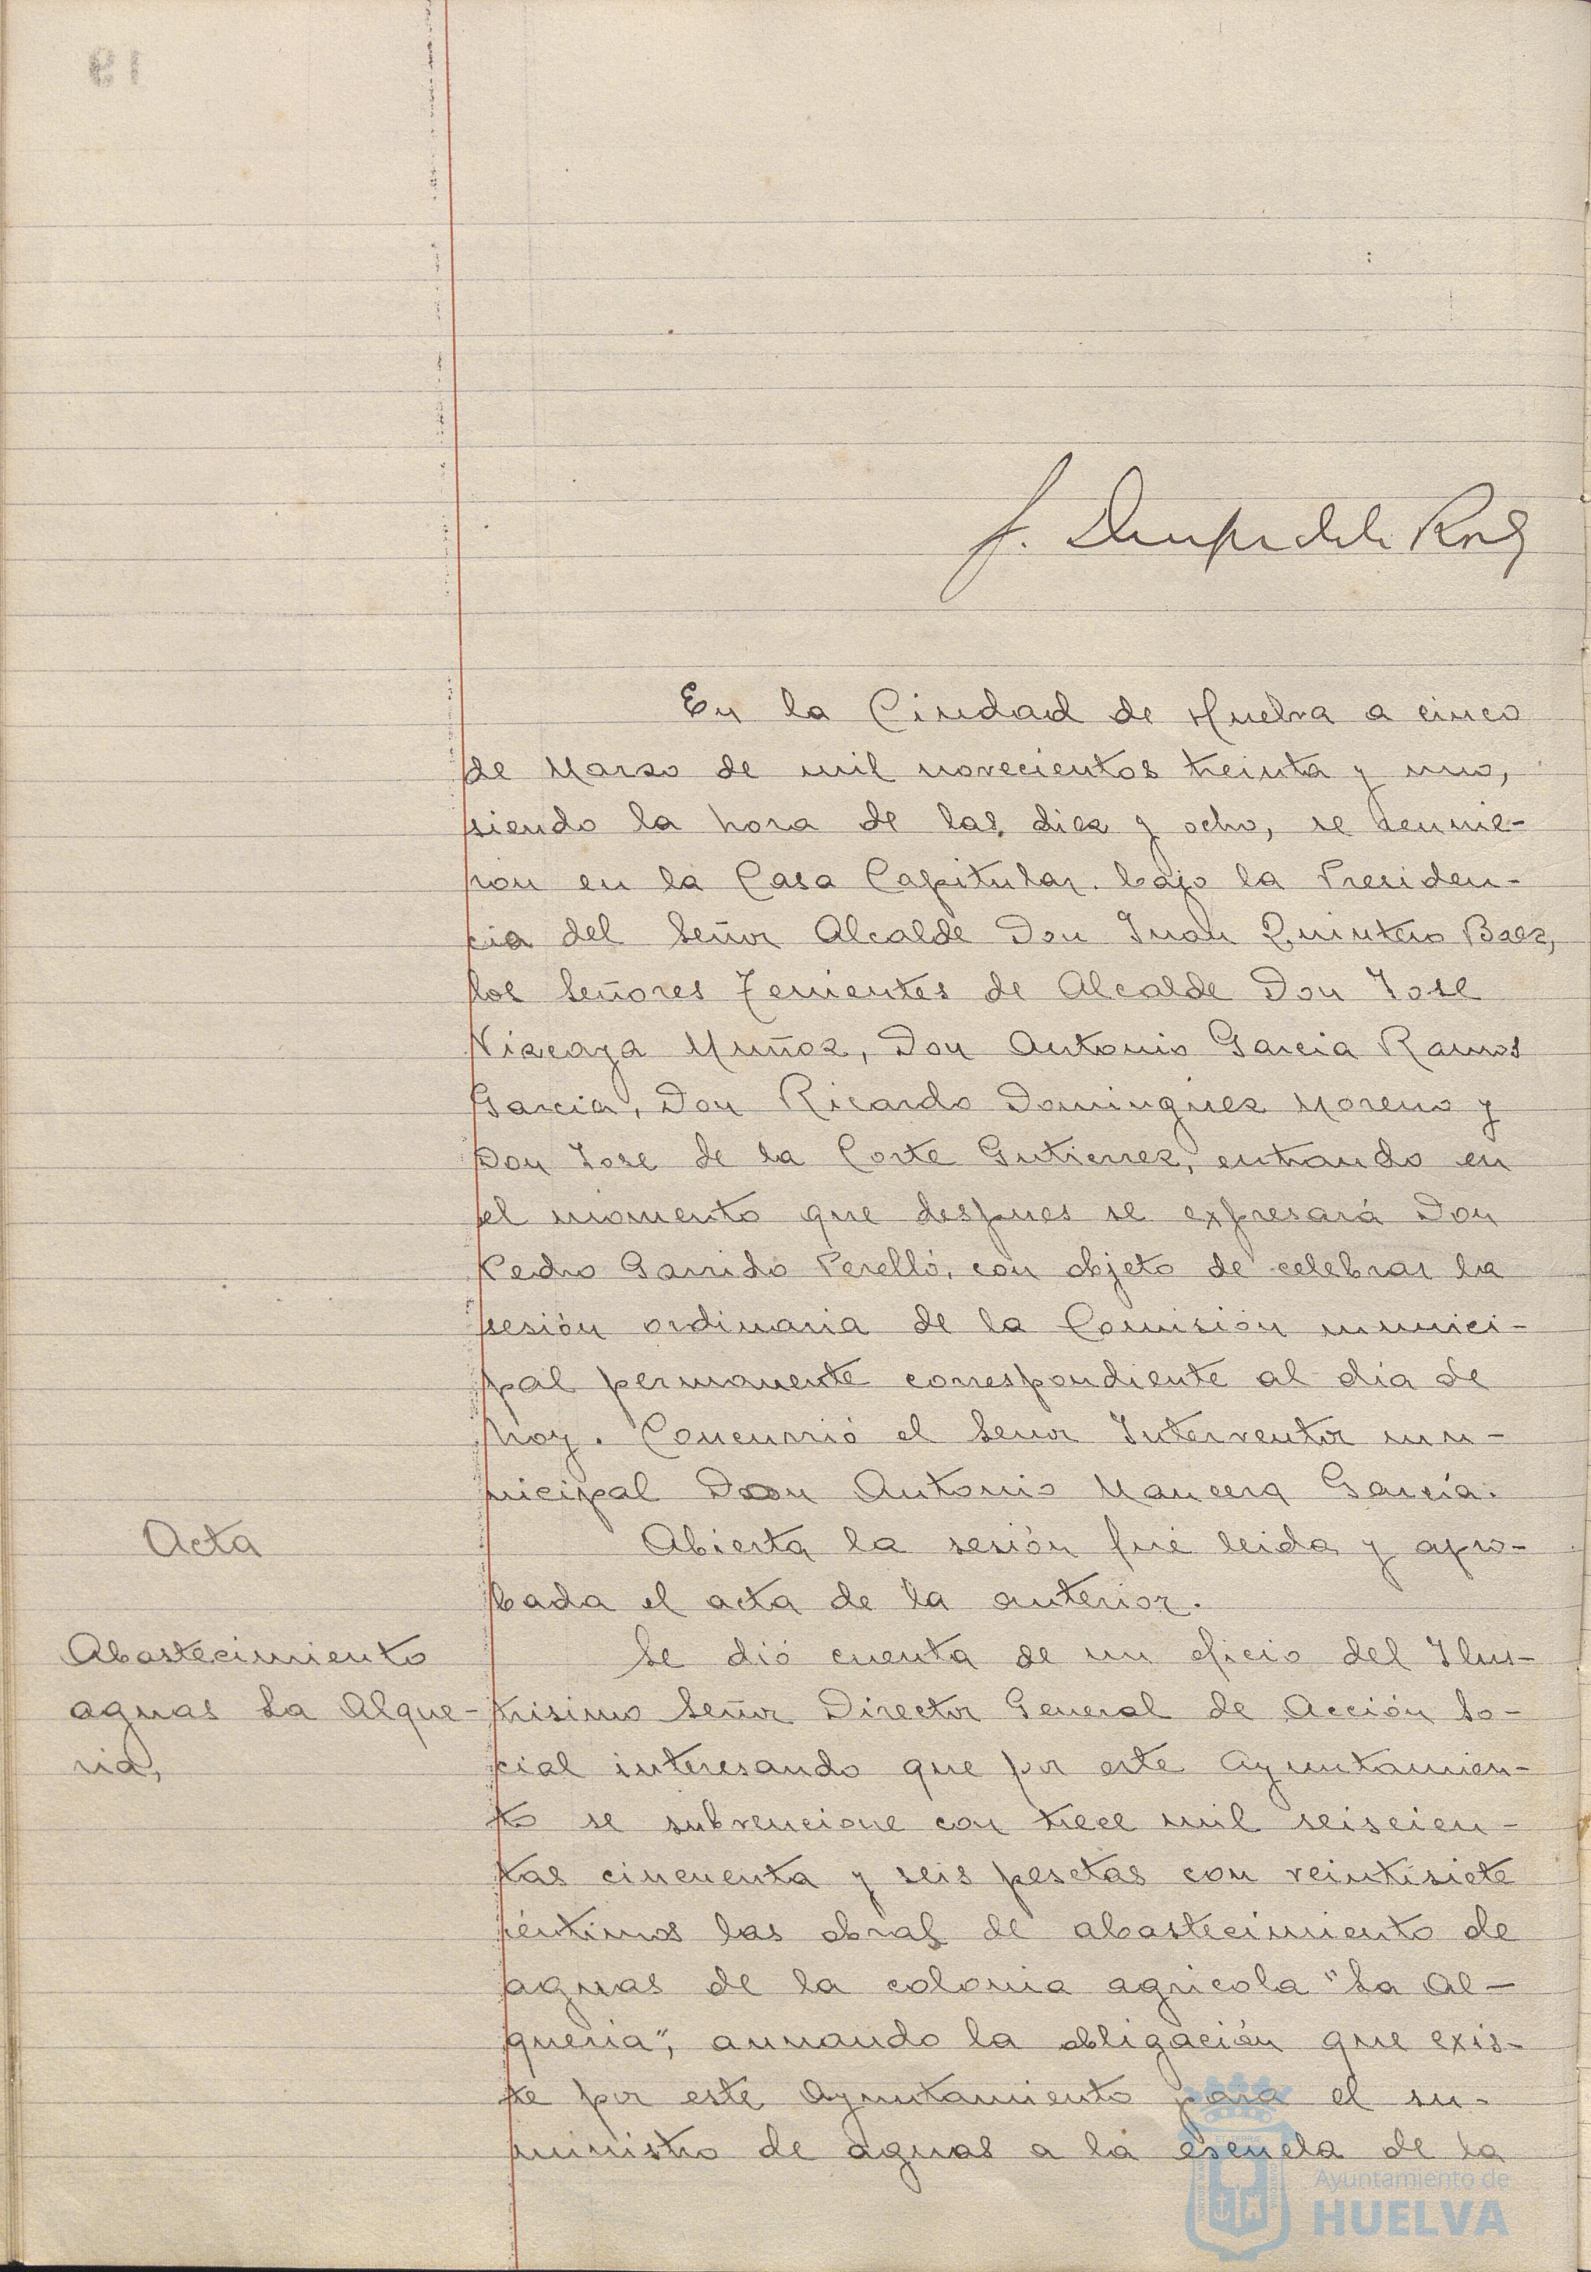 19
En la Ciudad de Huelva a cinco
de Marzo de mil novecientos treinta y uno,
siendo la hora de las diez y ocho, se reunie-
ron en la Casa Capitular. bajo la Presiden-
cia del Señor Alcalde Don Juan Quintero Baez,
los Señores Tenientes de Alcalde Don Jose
Vizcaya Muñoz, Don Antonio Garcia Ramos
Garcia, Don Ricardo Dominguez Moreno y
Don Jose de la Corte Gutierrez, entrando en
el momento que despues se expresará Don
Pedro Garrido Perelló, con objeto de celebrar la
sesión ordinaria de la Comisión munici-
pal permanente correspondiente al día de
hoy. Concurrió el Senor Interventor mu-
nicipal Don Antonio Mancera García.
Acta
Abierta la sesión fué leida y apro-
bada el acta de la anterior.
Abastecimiento
aguas La Alque-
ria,
Se dió cuenta de un oficio del Ilus-
trisimo Señor Director General de Acción So-
cial interesando que por este Ayuntamien-
to se subvencione con trece mil seiscien-
tas cincuenta y seis pesetas con veintisiete
céntimos las obras de abastecimiento de
aguas de la colonia agricola "La Al-
queria", aunando la obligación que exis-
te por este Ayuntamiento para el su-
ministro de aguas a la escuela de la
Ayuntamiento de
HUELVA